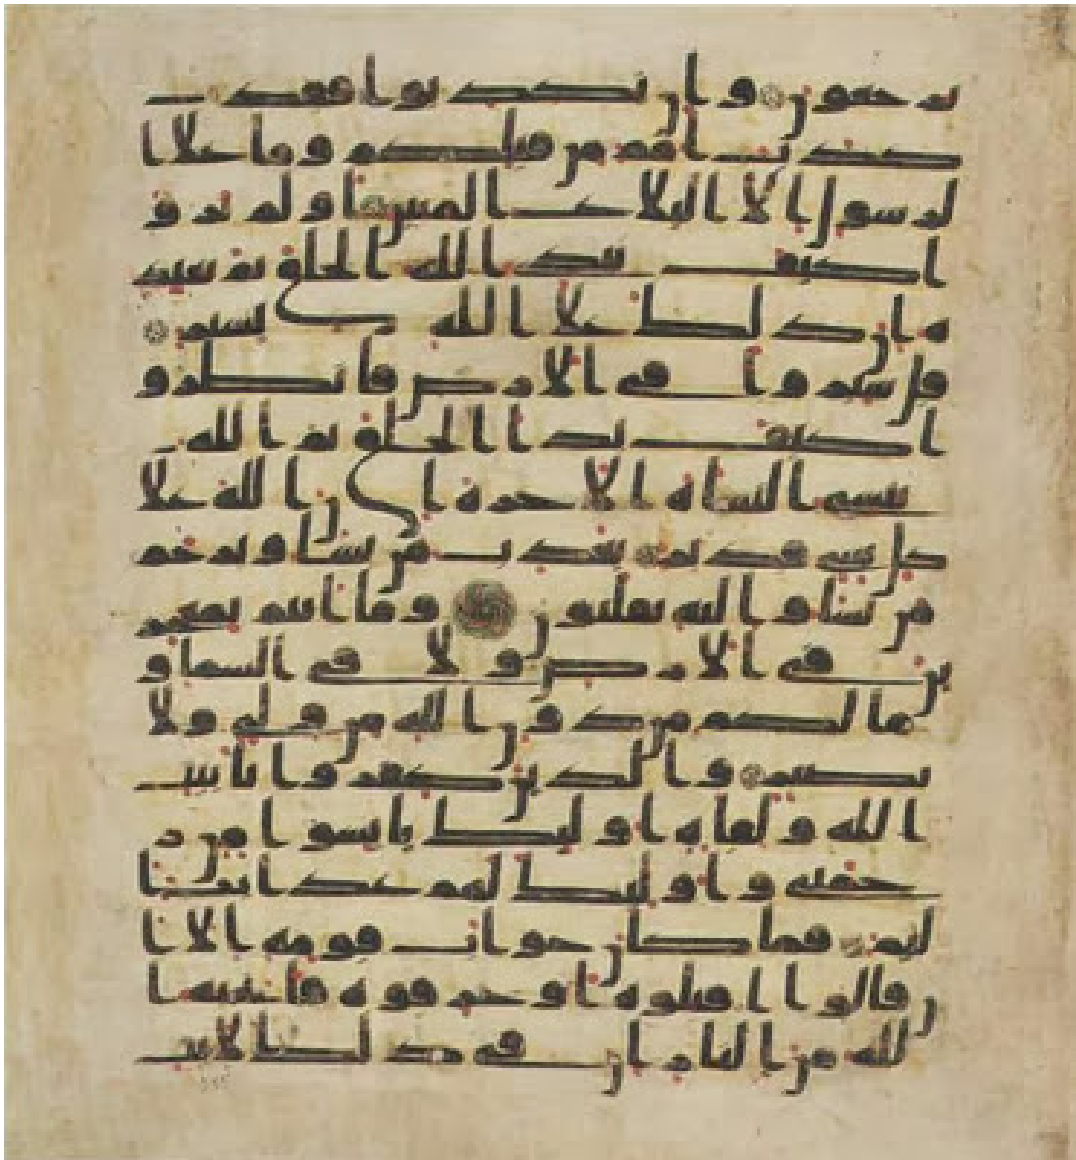 ترجعون وان تكذبوا فقد
كذب امم من قبلكم وما علا ا
لرسول الا البلاغ المبين اولم يرو
ا كيف يبدئ الله الخلق ثم يعيد
ه ان ذلك علا الله يسير
قل سيروا في الارض فانظرو
ا كيف بدا الخلق ثم الله
ينشئ النشاة الاخرة ان الله علا
كل شي قدير يعذب من يشا ويرحم
من يشا واليه تقلبون وما انتم بمعجز
ين في الارض ولا في السما و
ما لكم من دون الله من ولي ولا
نصير والذين كفروا بايت
الله ولقايه اوليك يايسوا من ر
حمتي واوليك لهم عذاب ا
ليم فما كان جواب قومه الا ا
ن قالوا اقتلوه او حرقوه فانجيه ا
لله من النار ان في ذلك لايت